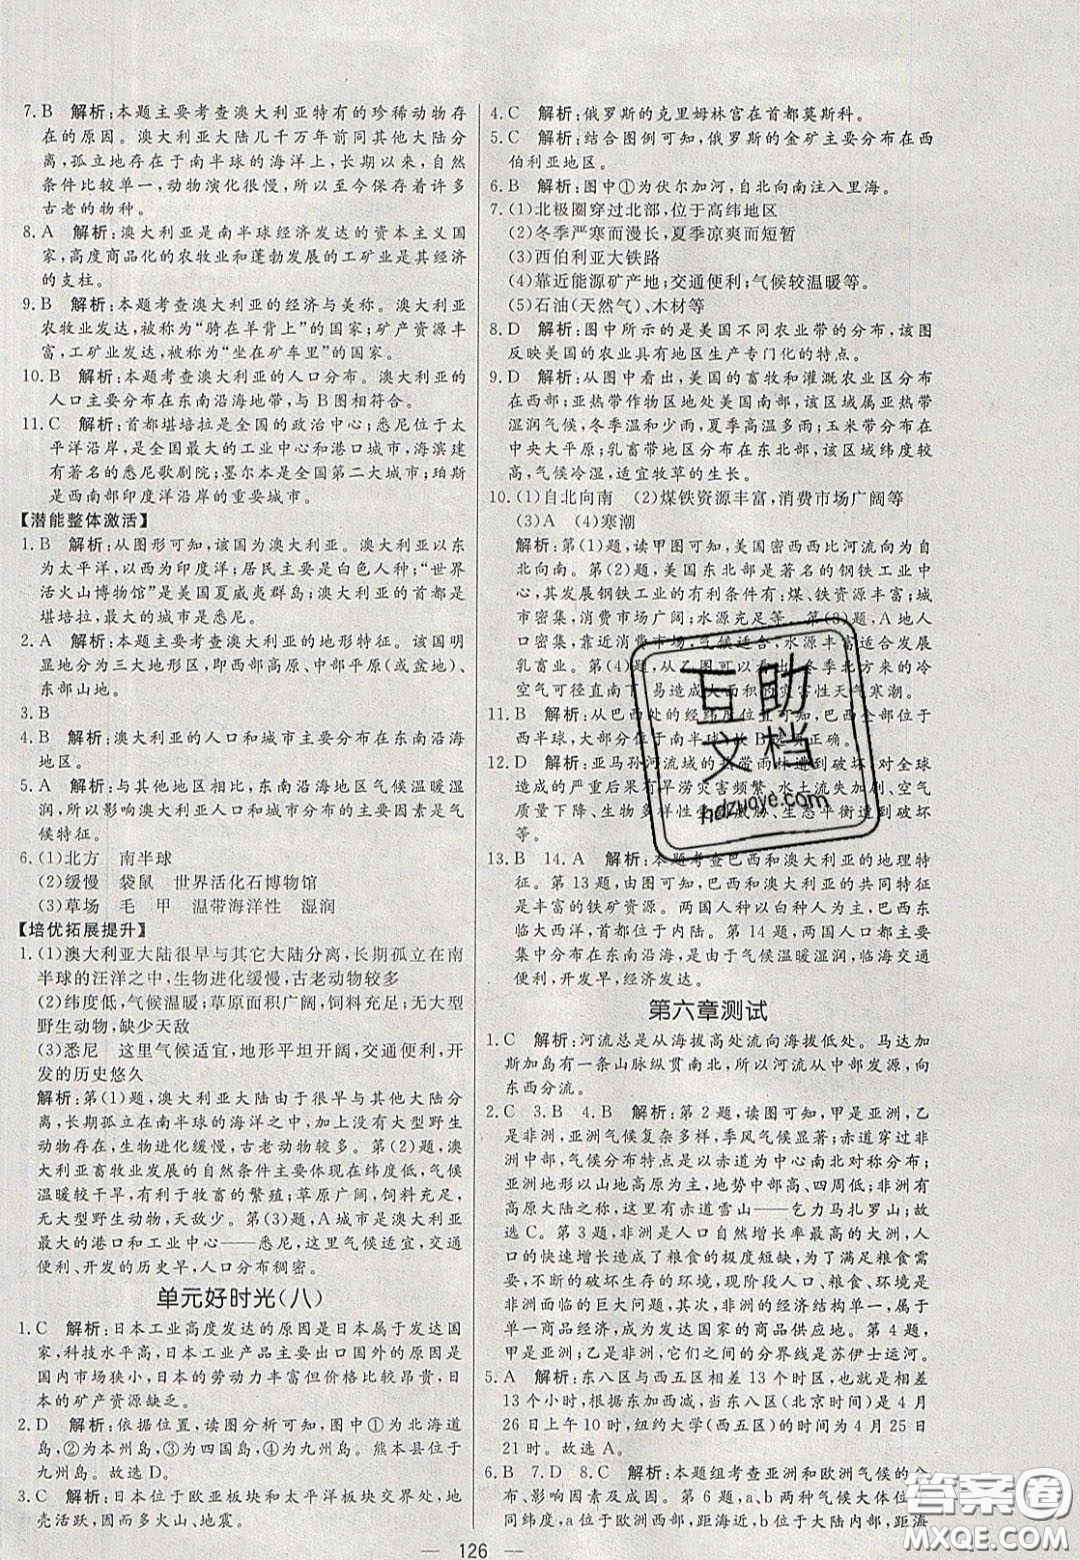 7. B　解析:本题主要考查澳大利亚特有的珍稀动物存
在的原因。澳大利亚大陆几千万年前同其他大陆分
离,孤立地存在于南半球的海洋上,长期以来,自然
条件比较单一,动物演化很慢,所以至今保存着许多
古老的物种。
8. A　解析:澳大利亚是南半球经济发达的资本主义国
家,高度商品化的农牧业和蓬勃发展的工矿业是其经济
的支柱。
9. B　解析:本题考查澳大利亚的经济与美称。澳大利亚
农牧业发达,被称为“骑在羊背上”的国家;矿产资源丰
富,工矿业发达,被称为“坐在矿车里”的国家。
10. B　解析:本题考查澳大利亚的人口分布。澳大利亚的
人口主要分布在东南沿海地带,与B图相符合。
11. C　解析:首都堪培拉是全国的政治中心;悉尼位于太
平洋沿岸,是全国最大的工业中心和港口城市,海滨建
有著名的悉尼歌剧院;墨尔本是全国第二大城市;珀斯
是西南部印度洋沿岸的重要城市。
【潜能整体激活】
1. B　解析:从图形可知,该国为澳大利亚。澳大利亚以东
为太平洋,以西为印度洋;居民主要是白色人种;“世界
活火山博物馆”是美国夏威夷群岛;澳大利亚的首都是
堪培拉,最大的城市是悉尼。
2. A　解析:本题主要考查澳大利亚的地形特征。该国明
显地分为三大地形区,即西部高原、中部平原(或盆地)、
东部山地。
3. B
4. B　解析:澳大利亚的人口和城市主要分布在东南沿海
地区。
5. A　解析:与其他地区相比,东南沿海地区气候温暖湿
润,所以影响澳大利亚人口和城市分布的主要因素是气
候特征。
6. (1)北方　南半球
(2)缓慢　袋鼠　世界活化石博物馆
(3)草场　毛　甲　温带海洋性　湿润
【培优拓展提升】
1. (1)澳大利亚大陆很早与其它大陆分离,长期孤立在南
半球的汪洋之中,生物进化缓慢,古老动物较多
(2)纬度低,气候温暖;草原面积广阔,饲料充足;无大型
野生动物,缺少天敌
(3)悉尼　这里气候适宜,地形平坦开阔,交通便利,开
发的历史悠久
解析:第(1)题,澳大利亚大陆由于很早与其他大陆分
离,长期孤立在南半球的海洋之中,加上没有大型野生
动物存在,生物进化缓慢,古老动物较多。第(2)题,澳
大利亚畜牧业发展的自然条件主要体现在纬度低,气候
温暖较干旱,有利于牧畜的繁殖;草原广阔,饲料充足,
无大型野生动物,天敌少。第(3)题,A城市是澳大利亚
最大的港口和工业中心——悉尼,这里气候适宜,交通
便利、开发的历史早,人口分布稠密。
单元好时光(八)
1. C　解析:日本工业高度发达的原因是日本属于发达国
家,科技水平高,日本工业产品主要出口国外的原因是
国内市场狭小,日本的劳动力丰富但价格比较昂贵,日
本的矿产资源缺乏。
2. D　解析:依据位置,读图分析可知,图中①为北海道
岛,②为本州岛,③为四国岛,④为九州岛。熊本县位于
九州岛。故选D。
3. C　解析:日本位于亚欧板块和太平洋板块交界处,地
壳活跃,因而多火山、地震。
4. C　解析:俄罗斯的克里姆林宫在首都莫斯科。
5. C　解析:结合图例可知,俄罗斯的金矿主要分布在西
伯利亚地区。
6. B　解析:图中①为伏尔加河,自北向南注入里海。
7. (1)北极圈穿过北部,位于高纬地区
(2)冬季严寒而漫长,夏季凉爽而短暂
(3)西伯利亚大铁路
(4)靠近能源矿产地;交通便利;气候较温暖等。
(5)石油(天然气)、木材等
8. D　解析:图中所示的是美国不同农业带的分布,该图
反映美国的农业具有地区生产专门化的特点。
9. D　解析:从图中看出,美国的畜牧和灌溉农业区分布
在西部;亚热带作物区地处美国南部,该区域属亚热带
湿润气候,冬季温和少雨,夏季高温多雨;玉米带分布在
中央大平原;乳畜带分布在东北部,该区域纬度较
高,气候冷湿,适宜牧草的生长。
10. (1)自北向南　(2)煤铁资源丰富,消费市场广阔等
(3)A　(4)寒潮
解析:第(1)题,读甲图可知,美国密西西比河流向为
自北向南。第(2)题,美国东北部是著名的钢铁工业中
心,其发展钢铁工业的有利条件有:煤、铁资源丰富;城
市密集,消费市场广阔;水源充足等。第(3)题,A地人
口密集,靠近消费市场,气候适合,水源丰富适合发展
乳畜业。第(4)题,从乙图可以看出,冬季北方来的冷
空气可径直南下,易造成大面积的灾害性天气寒潮。
11. B　解析:从巴西处的经纬度位置可知,巴西全部位于
西半球,大部分位于南半球。B选项正确。
12. D　解析:亚马孙河流域的热带雨林遭到破坏对全球
造成的严重后果有旱涝灾害频繁、水土流失加剧、空气
质量下降、生物多样性受到威胁、生态平衡遭到破坏
等。
13. B　14. A　解析:本题考查巴西和澳大利亚的地理特
征。第13题,由图可知,巴西和澳大利亚的共同特征
是丰富的铁矿资源,巴西地形以高原和平原为主,东临
大西洋,首都位于内陆。第14题,两国人口和城市
集中分布在东南沿海,是由于气候温暖湿润,临海交通
便利,开发早,经济发达。
第六章测试
1. C　解析:河流总是从海拔高处流向海拔低处。马达加
斯加岛有一条山脉纵贯南北,所以河流从中部发源,向
东西分流。
2. C　3. B　4. B　解析:第2题,读图可知,甲是亚洲,乙
是非洲,亚洲气候复杂多样,季风气候显著;赤道穿过非
洲中部,气候分布的特点是以赤道为中心南北对称分布;
亚洲地形以高原山地为主,地势中部高、四周低;非洲是
高原大陆,这里有赤道雪山——乞力马扎罗山;故
选C。第3题,非洲是人口自然增长率最高的大洲,人
口的快速增长造成了粮食的极度短缺,为了满足粮食需
要,不断的破坏生存的环境,现阶段人口、粮食、环境是
非洲面临的巨大问题,其次,非洲的经济结构单一,属于
单一商品经济,成为发达国家的商品供应地。第4题,
甲是亚洲,乙是非洲,它们之间的分界线是苏伊士运河。
5. A　解析:东八区与西五区相差13个时区,也就是相差
13个小时,根据东加西减,当东八区(北京时间)是4月
26日上午10时,纽约大学(西五区)的时间为4月25日
21时。故选A。
6. B　7. D　8. C　解析:本题组考查亚洲和欧洲气候的分
布、影响因素及成因。第6题,a、b两种气候大体位于
同纬度,a位于西部,距海近,b位于内陆,距海远,所以
126
互助
文档
hdzuoye.com
答案圈
MXQE.COM